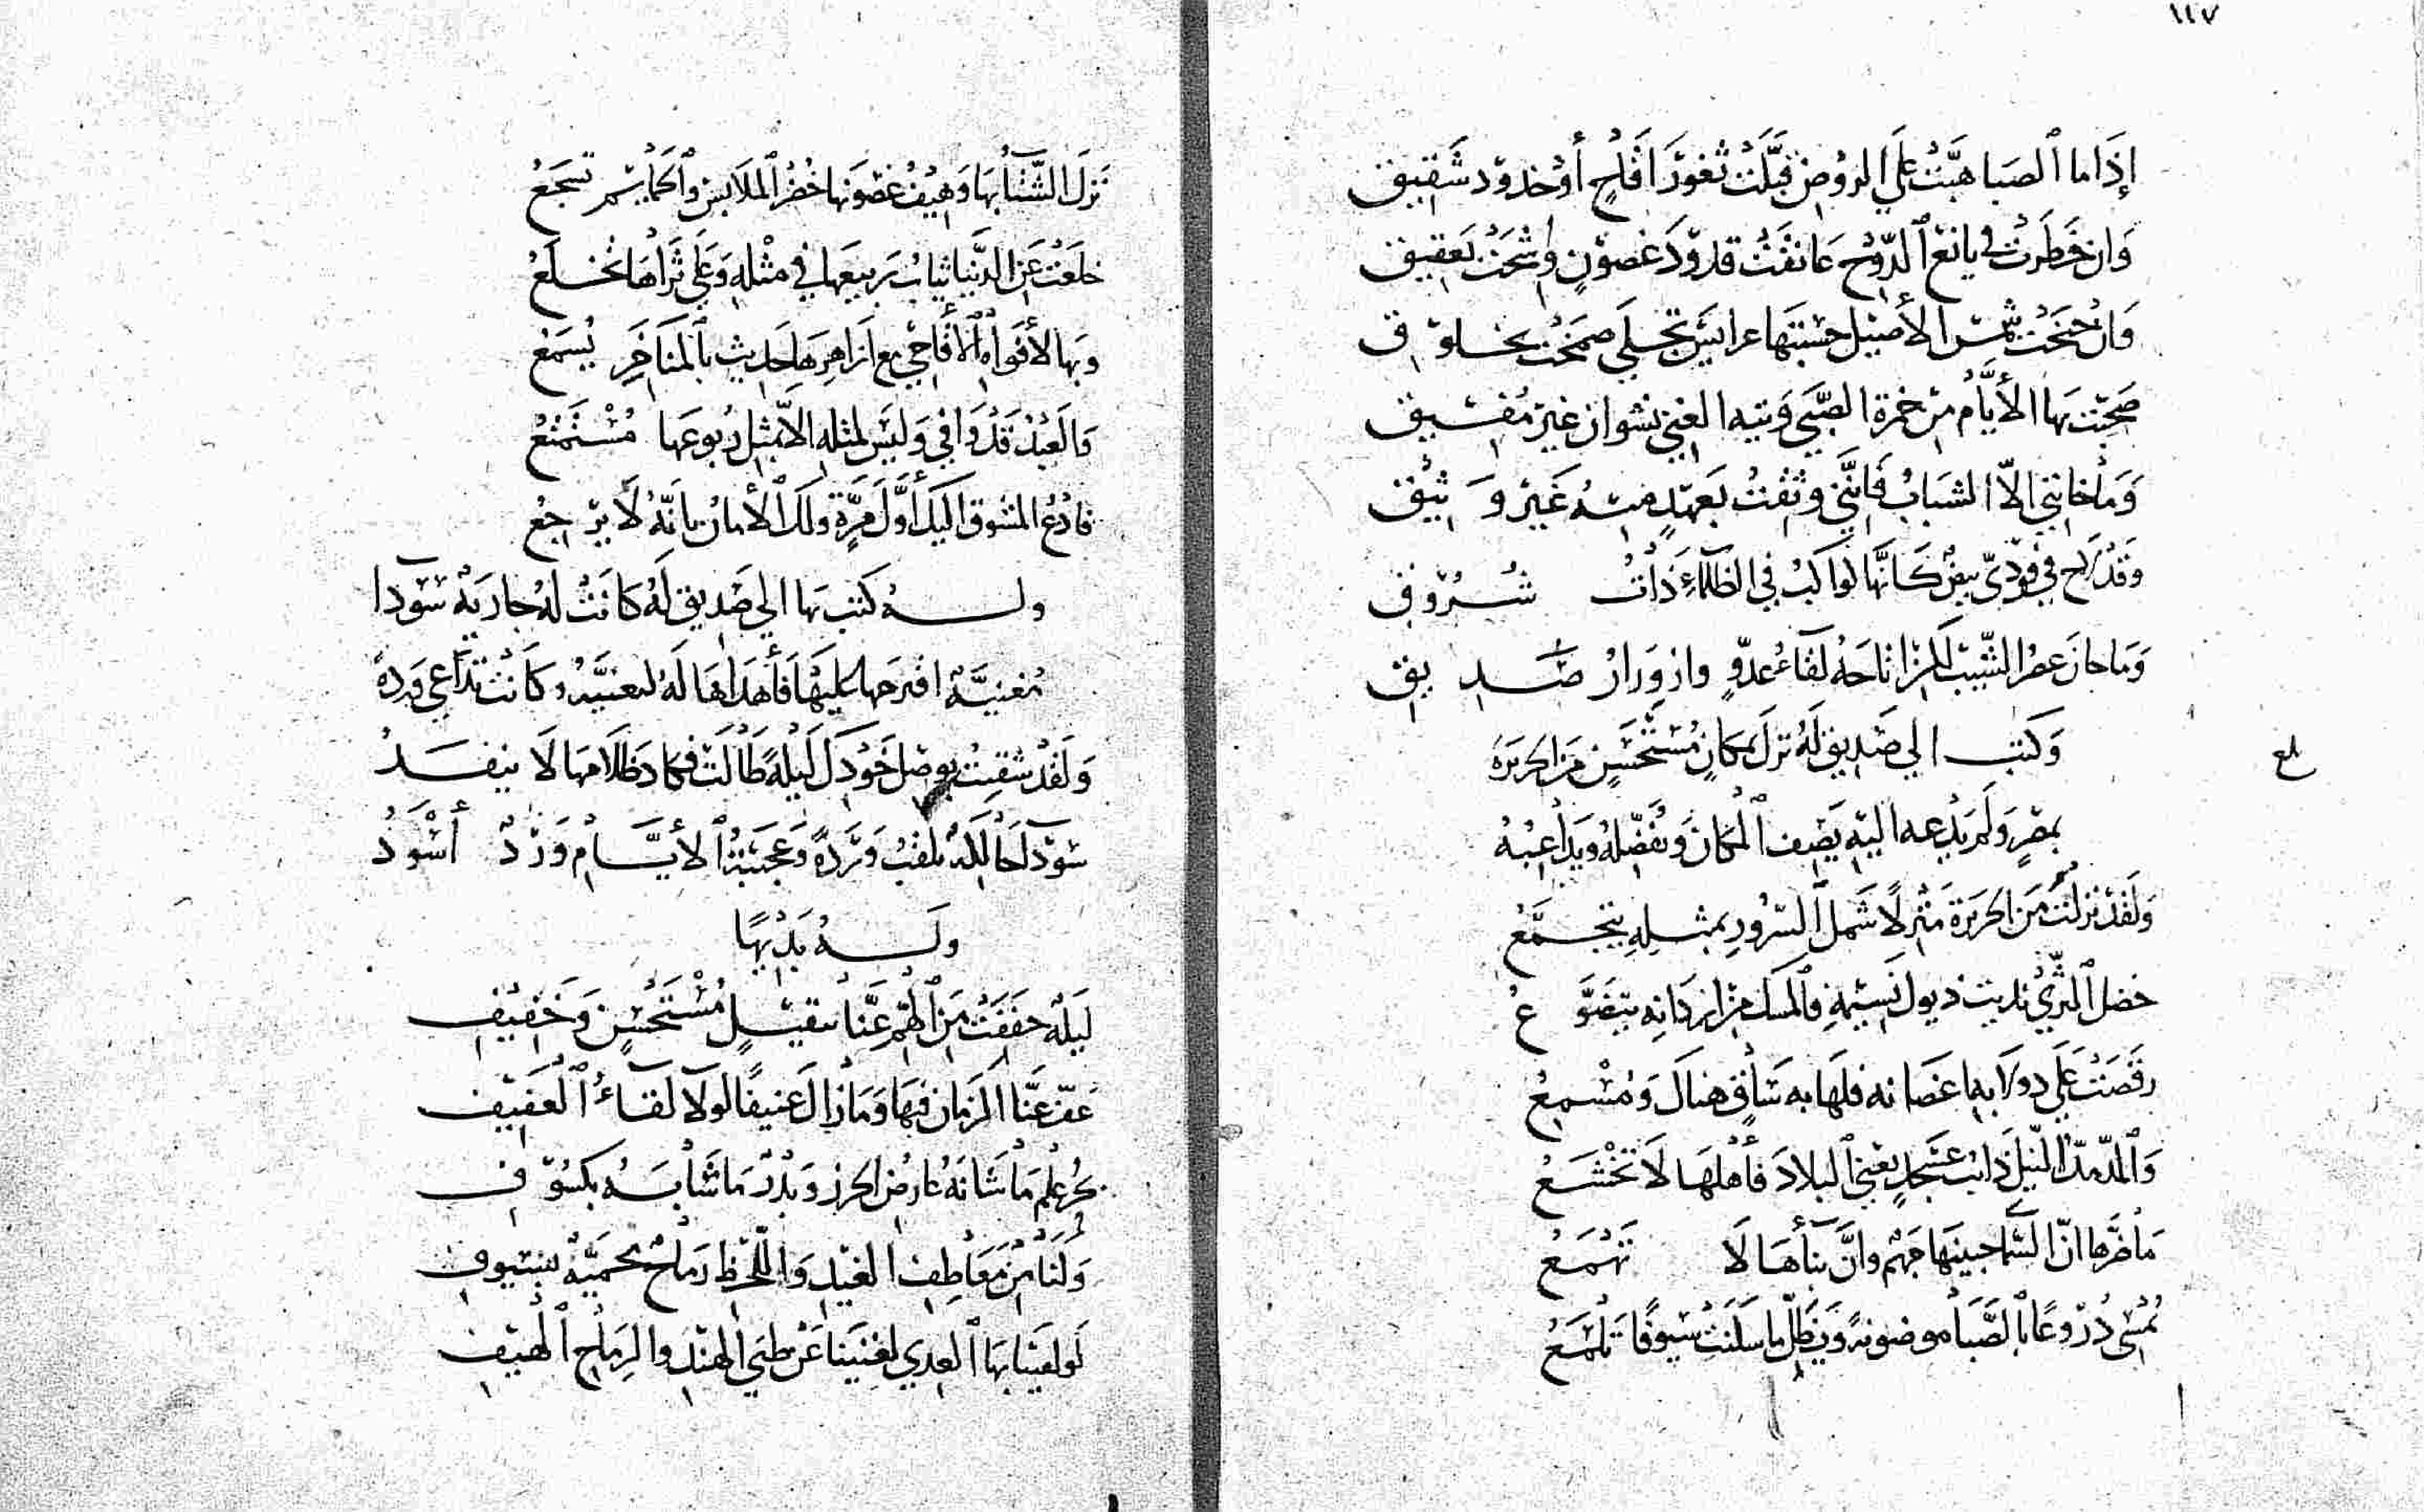 ١٤٧
إِذَا ما ٱلصَبا هَبَّتْ عَلَى الروْضِ قَبَّلَتْ ثغورَ اقَاحٍ أَوْ خدودَ شَقِيقِ
وَان خَطَرتْ في يانع ٱلدّوْحِ عَانقَتْ قدودَ غصوْنٍ وُشِّحَتْ بعَقيقِ
وَان جنَحَتْ شمسُ الأَصيْل حسِبْتَهَا عرايسَ تجلَى ضمخَتْ بخلوقِ
صَحِبْت بها الأَيَّام مِنْ خمرة الصّبَى وَتيه الغِنى نشوان غيرَ مُفيقِ
وَمَا خانني الاّ الشبَابُ فَانَّنِي وثقْتُ بعَهدٍ منهُ غَيْر وَثيْقِ
وَقَدْ لاح في فوْديّ بيضٌ كَانَّهَا كواكبُ في الظلْمَآءِ ذَاتُ شُرُوقِ
وَما حازَ عصرُ الشّيْب لكن اتاحَهُ لقآءُ عدّوٍ وازوِرَارُ صَديقِ
وَكَتب الي صَديقٍ لَهُ نزلَ بمكانٍ مُسْتَحْسَنٍ مِن الجزيرَة
بمِصْرٍ وَلَم يَدْعه اليْهِ يَصِف ٱلْمَكانَ وَيُفَضّلهُ وَيدَاعِبُهُ
وَلَقدْ نزلتُ مِنَ الجزيرَة مَنْزلًا شَمل ٱلسّرُورِ بمثلِهِ يتجمَّعُ
خضل ٱلثّرَى نديت ذيول نَسيْمهِ فالمسك مِنْ اردَانِه يتضَوَّعُ
رقَصَتْ عَلَى دولابه اغصَانه فلهَا به سَاقٍ هناكَ وَمُسْمِعُ
وَٱلمدّ مدّ النّيلَ ذائبَ عَسْجدٍ يغني ٱلبلادَ فأَهْلهَا لَا تخْشَعُ
مَا ضَرَّها انّ السَّمَا جبينهَا جَهْم وانَّ بنأهَا لَا تَهْمَعُ
تُمْسِى دُرُوعًا بالصَّبَا موضونةً وَيَظلّ ما سكنَت سيوفًا تلمَعُ
بلغ
نزلَ الشّتَآ بهَا وَهيْفُ غصونها خُضْرُ ٱلملابس وٱلحمايم تسجَعُ
خلعَتْ عَن الدنْيَا ثيابُ رَبيعهَا في مثْلهِ وَعَلى ثَرَاهَا تُخلَعُ
وبها لأفوَاهِ ٱلأَقاحِي مع ازَاهِرهَا حَديث بٱلمنَاخَرِ يُسمَعُ
وَالعبْدُ قَدْ وَافى وَليْسَ لمثله الاّ بمثل رُبوعهَا مُسْتمْتَعُ
فادْعُ المشُوقَ اليك أَوَّلَ مَرَّةٍ ولكَ ٱلأَمان بانّهُ لَا يرْجعُ
ولهُ كتبَ بهَا الي صَديق لَهُ كَانَتْ لهُ جاريَةٌ سَوْدَا
مُغنيَّة اقترحَها عَليْهَا فَأَهْدَاهَا لَهُ لتغنيهُ وكَانَتْ تدَاعي وَردة
وَلَقَدْ شقيتُ بوصْل خَوْدٍ كُلّ لَيْلةً طَالَتْ فَما كادَ ظَلامهَا لَا ينفَدُ
سَوْدآ حَالكَة تلقَبُ وَرْدَةً وَعَجيْبَةُ ٱلأيَّامِ وَرْدٌ أَسْوَدُ
وَلهُ بَدِيْهًا
لَيلَة خففَتْ مِنَ ٱلهَمّ عَنَّا بثقيْلٍ مُسْتَحْسَنٍ وَخَفِيْفِ
عفّ عنَّا الزمان فيهَا وَمَا زالَ عَنيفًا لولَا لقآءُ ٱلْعَفيْفِ
بحْرُ علم مَا شَانَهُ عَارضُ الجزر وَبَدْرٌ مَا شَابَهُ بكسُوفِ
وَلنَا مِنْ مَعَاطِفِ الغيْدِ وَاللّحْظِ رمَاحٌ محميَّةٌ بسُيوفِ
لَو لقيْنَا بهَا ٱلعِدى لغنينَا عَنْ ظبَى ٱلهنْد والرِمَاحِ ٱلْهيفِ